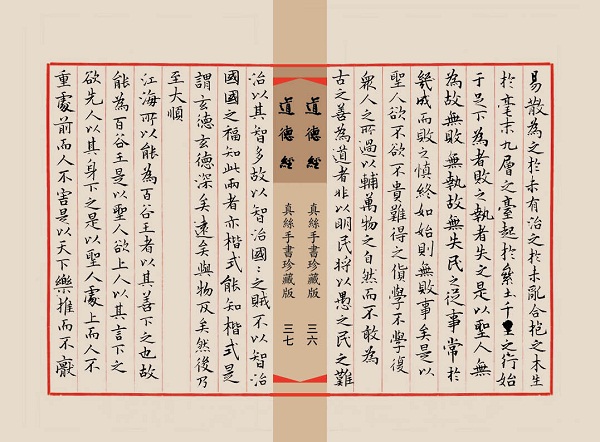 易散為之於未有治之於未亂合抱之本生
於毫末九層之臺起於絫土千里之行始
于足下為者敗之執者失之是以聖人無
為故無敗無執故無失民之從事常於
幾成而敗之慎終如始則無敗事矣是以
聖人欲不欲不貴難得之貨學不學復
衆人之所過以輔萬物之自然而不敢為
古之善為道者非以明民將以愚之民之難
道德經 真絲手書珍藏版 三六
道德經 真絲手書珍藏版 三七
治以其智多故以智治國:之賊不以智治
國國之福知此兩者亦楷式能知楷式是
謂玄德玄德深矣遠矣與物反矣然後乃
至大順
江海所以能為百谷王者以其善下之也故
能為百谷王是以聖人欲上人以其言下之
欲先人以其身下之是以聖人處上而人不
重處前而人不害是以天下樂推而不厭